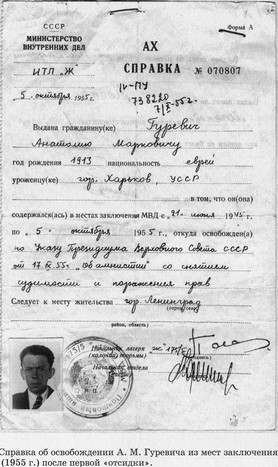 СССР
МИНИСТЕРСТВО
ВНУТРЕННИХ ДЕЛ
Форма А
ИТЛ „Ж"
АХ
СПРАВКА № 070807
5 октября 1955 г.
IV-ПУ
798220
7/X-55г.
Выдана гражданину(ке) Гуревич
Анатолию Марковичу
год рождения 1913 национальность еврей
уроженцу(ке) гор. Харьков, УССР
в том, что он(она)
содержался(ась) в местах заключения МВД с „21" июня 1945 г.
по „5" октября 1955 г., откуда освобожден(а)
по Указу Президиума Верховного Совета СССР
от 17.IX.55г. „Об амнистии" со снятием
судимости и поражения прав
Следует к месту жительства гор. Ленинград
район, область)
Начальник лагеря
(колонии, тюрьмы)
Начальник отдела
Справка об освобождении А. М. Гуревича из мест заключения
(1955 г.) после первой «отсидки».